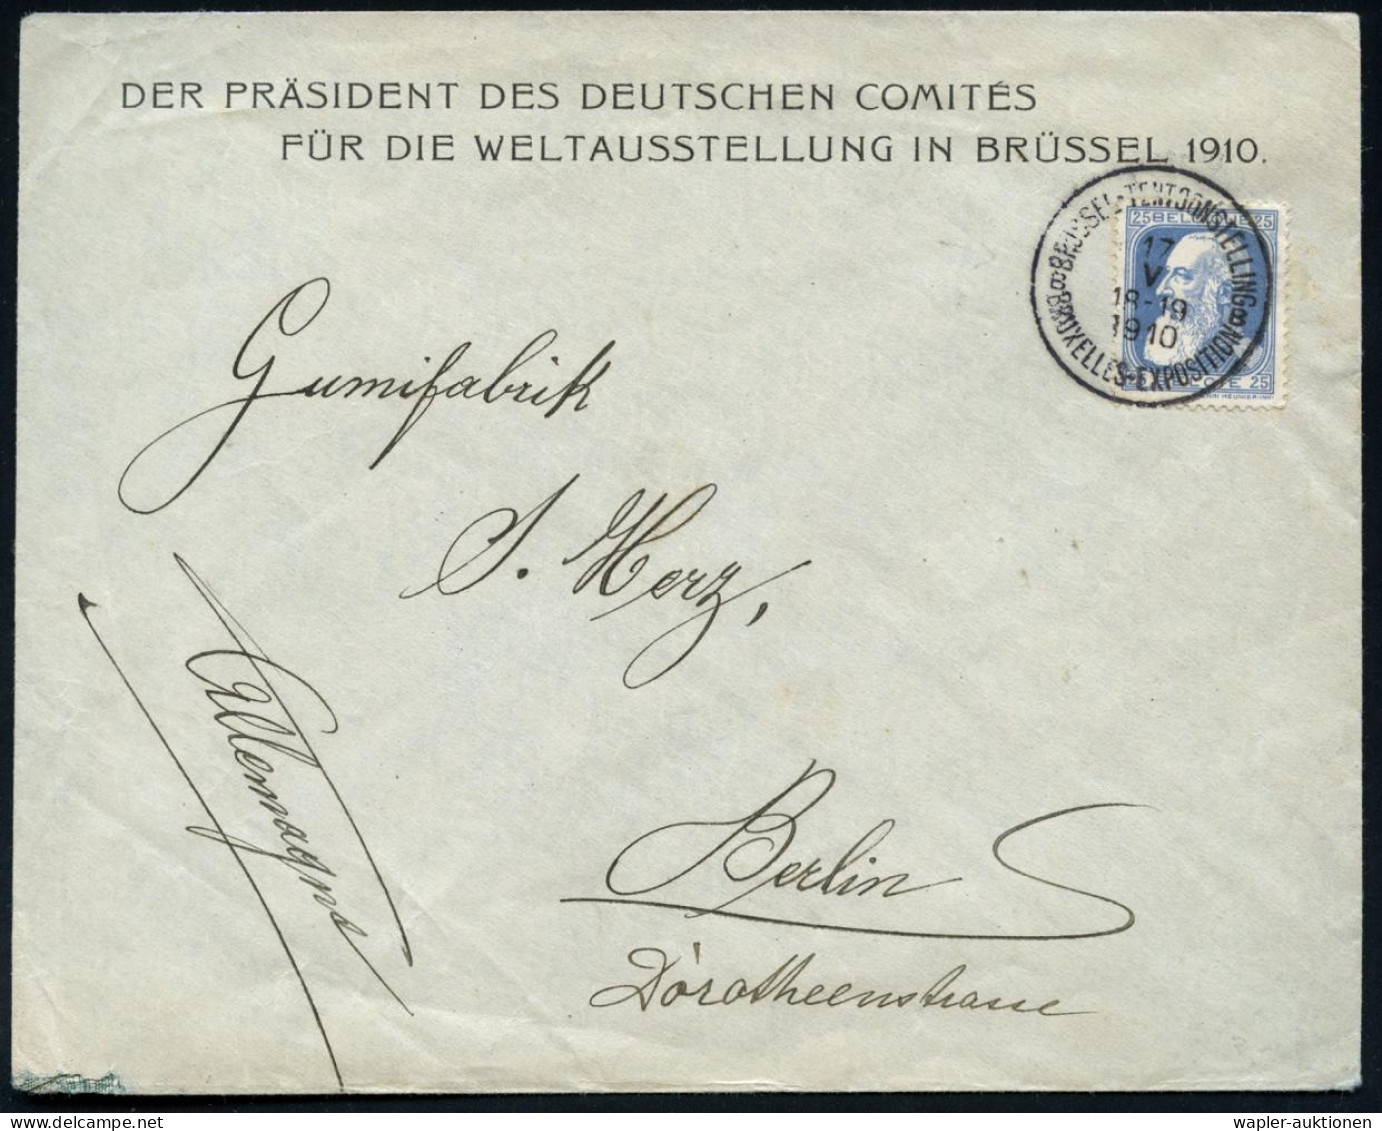 DER PRÄSIDENT DES DEUTSCHEN COMITÉS
FÜR DIE WELTAUSSTELLUNG IN BRÜSSEL 1910.
BRUSSEL-TENTOONSTELLING
17
V
18-19
1910
BRUXELLES-EXPOSITION
25 BELGIQUE 25
25
Gumifabrik
S. Herz,
Allemagne
Berlin
Dorotheenstrasse
wapler-auktionen.com